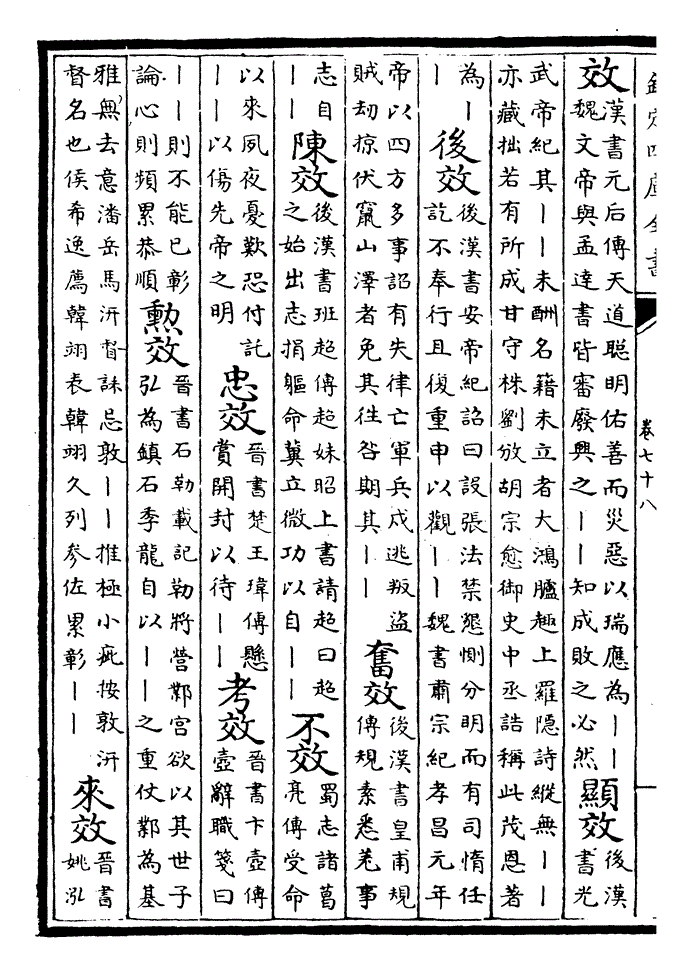 欽定四庫全書
卷七十八
效
漢書元后傳天道聰明佑善而災惡以瑞應為丨丨
魏文帝與孟達書皆審廢興之丨丨知成敗之必然
顯效
後漢
書光
武帝紀其丨丨未酬名籍未立者大鴻臚趣上羅隱詩縱無丨丨
亦藏拙若有所成甘守株劉攽胡宗愈御史中丞誥稱此茂恩著
為丨
丨
後效
後漢書安帝紀詔曰設張法禁懇惻分明而有司惰任
訖不奉行且復重申以觀丨丨魏書肅宗紀孝昌元年
帝以四方多事詔有失律亡軍兵戍逃叛盜
賊劫掠伏竄山澤者免其往咎期其丨丨
奮效
後漢書皇甫規
傳規素悉羌事
志自
丨丨
陳效
後漢書班超傳超妹昭上書請超曰超
之始出志捐軀命冀立微功以自丨丨
不效
蜀志諸葛
亮傳受命
以來夙夜憂歎恐付託
丨丨以傷先帝之明
忠效
晉書楚王瑋傳懸
賞開封以待丨丨
考效
晉書卞壼傳
壼辭職箋曰
丨丨則不能已彰
論心則頻累恭順
勲效
晉書石勒載記勒將營鄴宮欲以其世子
弘為鎮石季龍自以丨丨之重仗鄴為基
雅無去意潘岳馬汧督誄忌敦丨丨推極小疵按敦汧
督名也侯希逸薦韓翃表韓翃久列參佐累彰丨丨
來效
晉書
姚泓